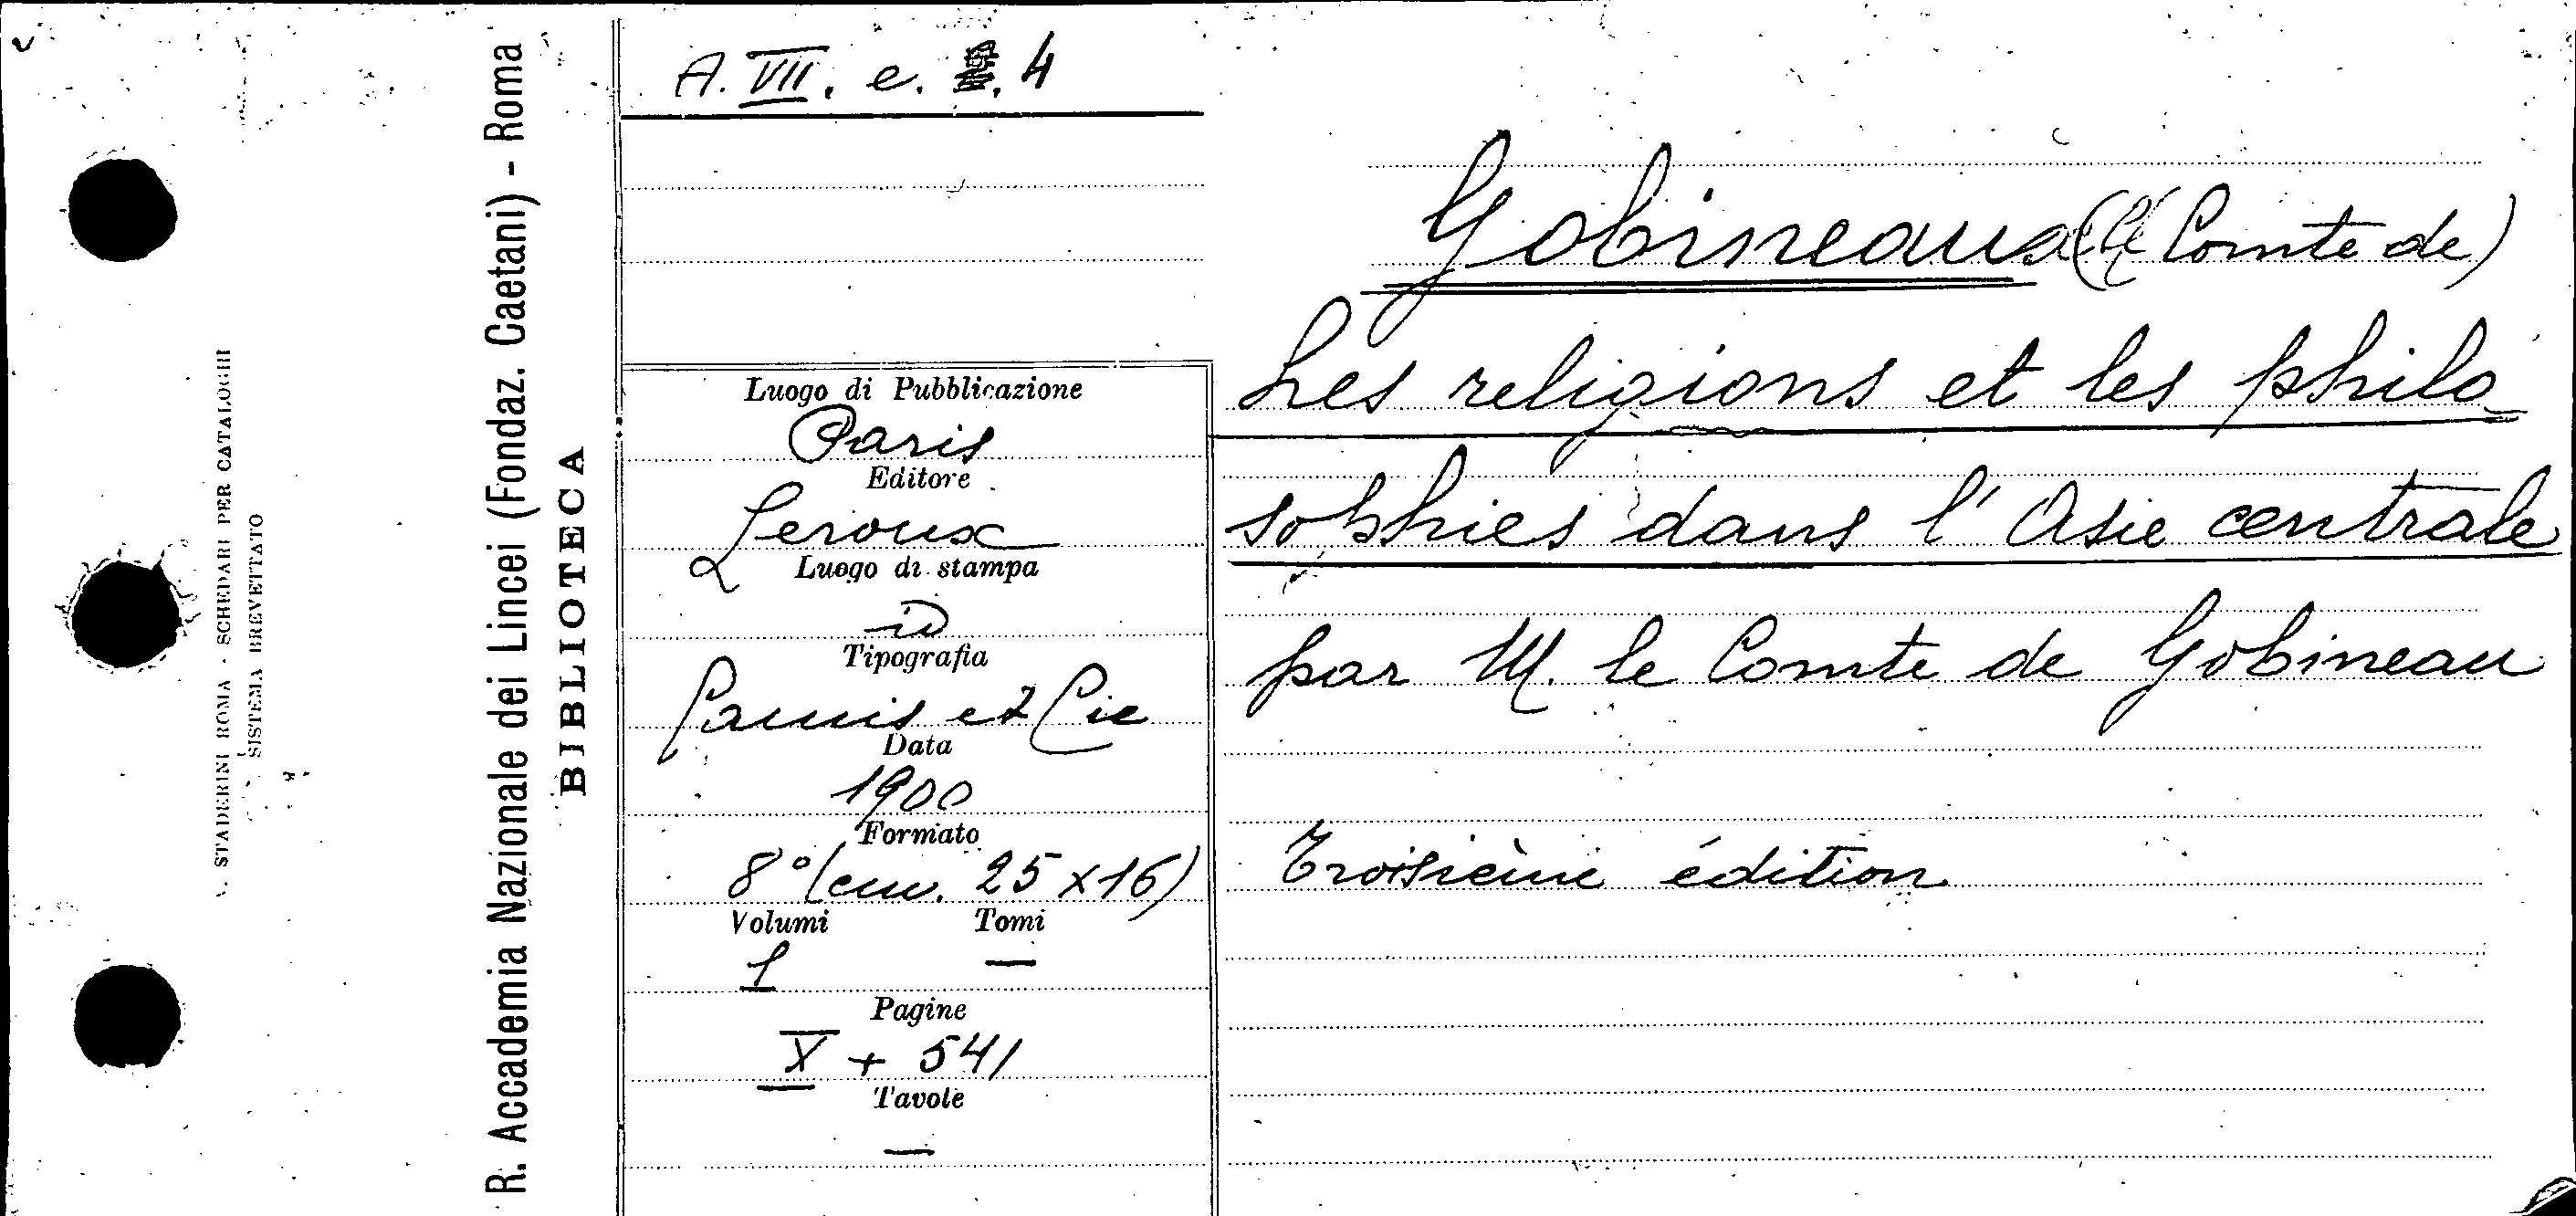 A. VII. e. 4
Gobineau (Comte de)
Les religions et les philo
sophies dans l'Asie centrale
par M. le Comte de Gobineau
Troisième édition
Luogo di Pubblicazione
Paris
Editore
Leroux
Luogo di stampa
id
Tipografia
Camis et Cie
Data
1900
Formato
8° (cm. 25 x 16)
Volumi Tomi
1 —
Pagine
X + 541
Tavole
—
R. Accademia Nazionale dei Lincei (Fondaz. Caetani) - Roma
BIBLIOTECA
STADERINI ROMA - SCHEDARI PER CATALOGHI
SISTEMA BREVETTATO